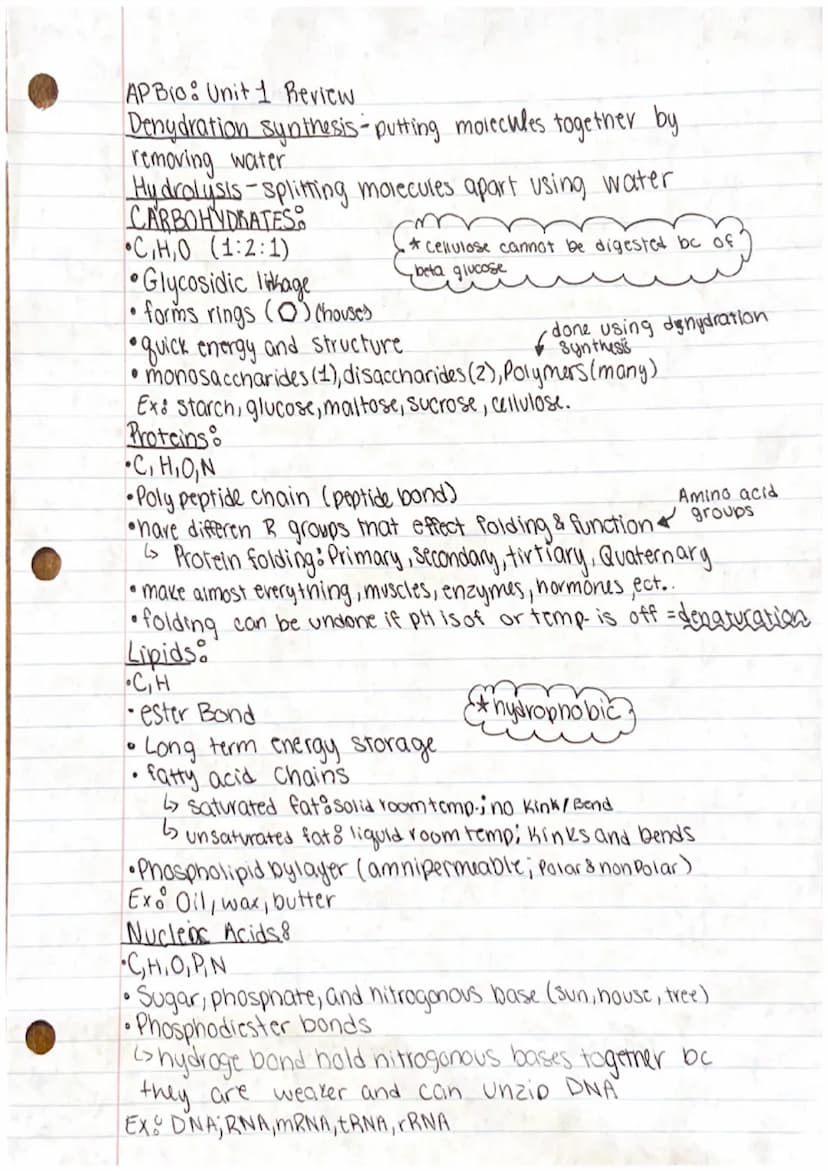 AP Bio: Unit 1 Review
Denydration synthesis - putting molecules together by
removing water
Hydrolysis - splitting molecules apart using water
CARBOHYDRATES:
• C,H,O (1:2:1)
* cellulose cannot be digested bc of
beta glucose
• Glycosidic linkage
• forms rings (⬡) (houses
done using dehydration
synthesis
• quick energy and structure
• monosaccharides(1), disaccharides(2), Polymers(many)
Ex: starch, glucose, maltose, sucrose, cellulose.
Proteins:
• C, H, O, N
• Poly peptide chain (peptide bond)
Amino acid
groups
• have differen R groups that effect folding & function
↳ Protein folding: Primary, Secondary, tirtiary, Quaternary
• make almost everything, muscles, enzymes, hormones, ect..
• folding can be undone if pH is of or temp. is off = denaturation
Lipids:
• C, H
• ester Bond
* hydrophobic
• Long term energy storage
• fatty acid chains
↳ saturated fat: solid room temp.; no kink/Bend
↳ unsaturated fat: liquid room temp; kinks and bends
• Phospholipid bylayer (amnipermeable; Polar & non Polar)
Ex: Oil, wax, butter
Nucleic Acids:
• C,H,O,P,N
• Sugar, phosphate, and nitrogonous base (sun, house, tree)
• Phosphodiester bonds
↳ hydroge bond hold nitrogonous bases together bc
they are weaker and can unzip DNA
Ex: DNA; RNA, mRNA, tRNA, rRNA